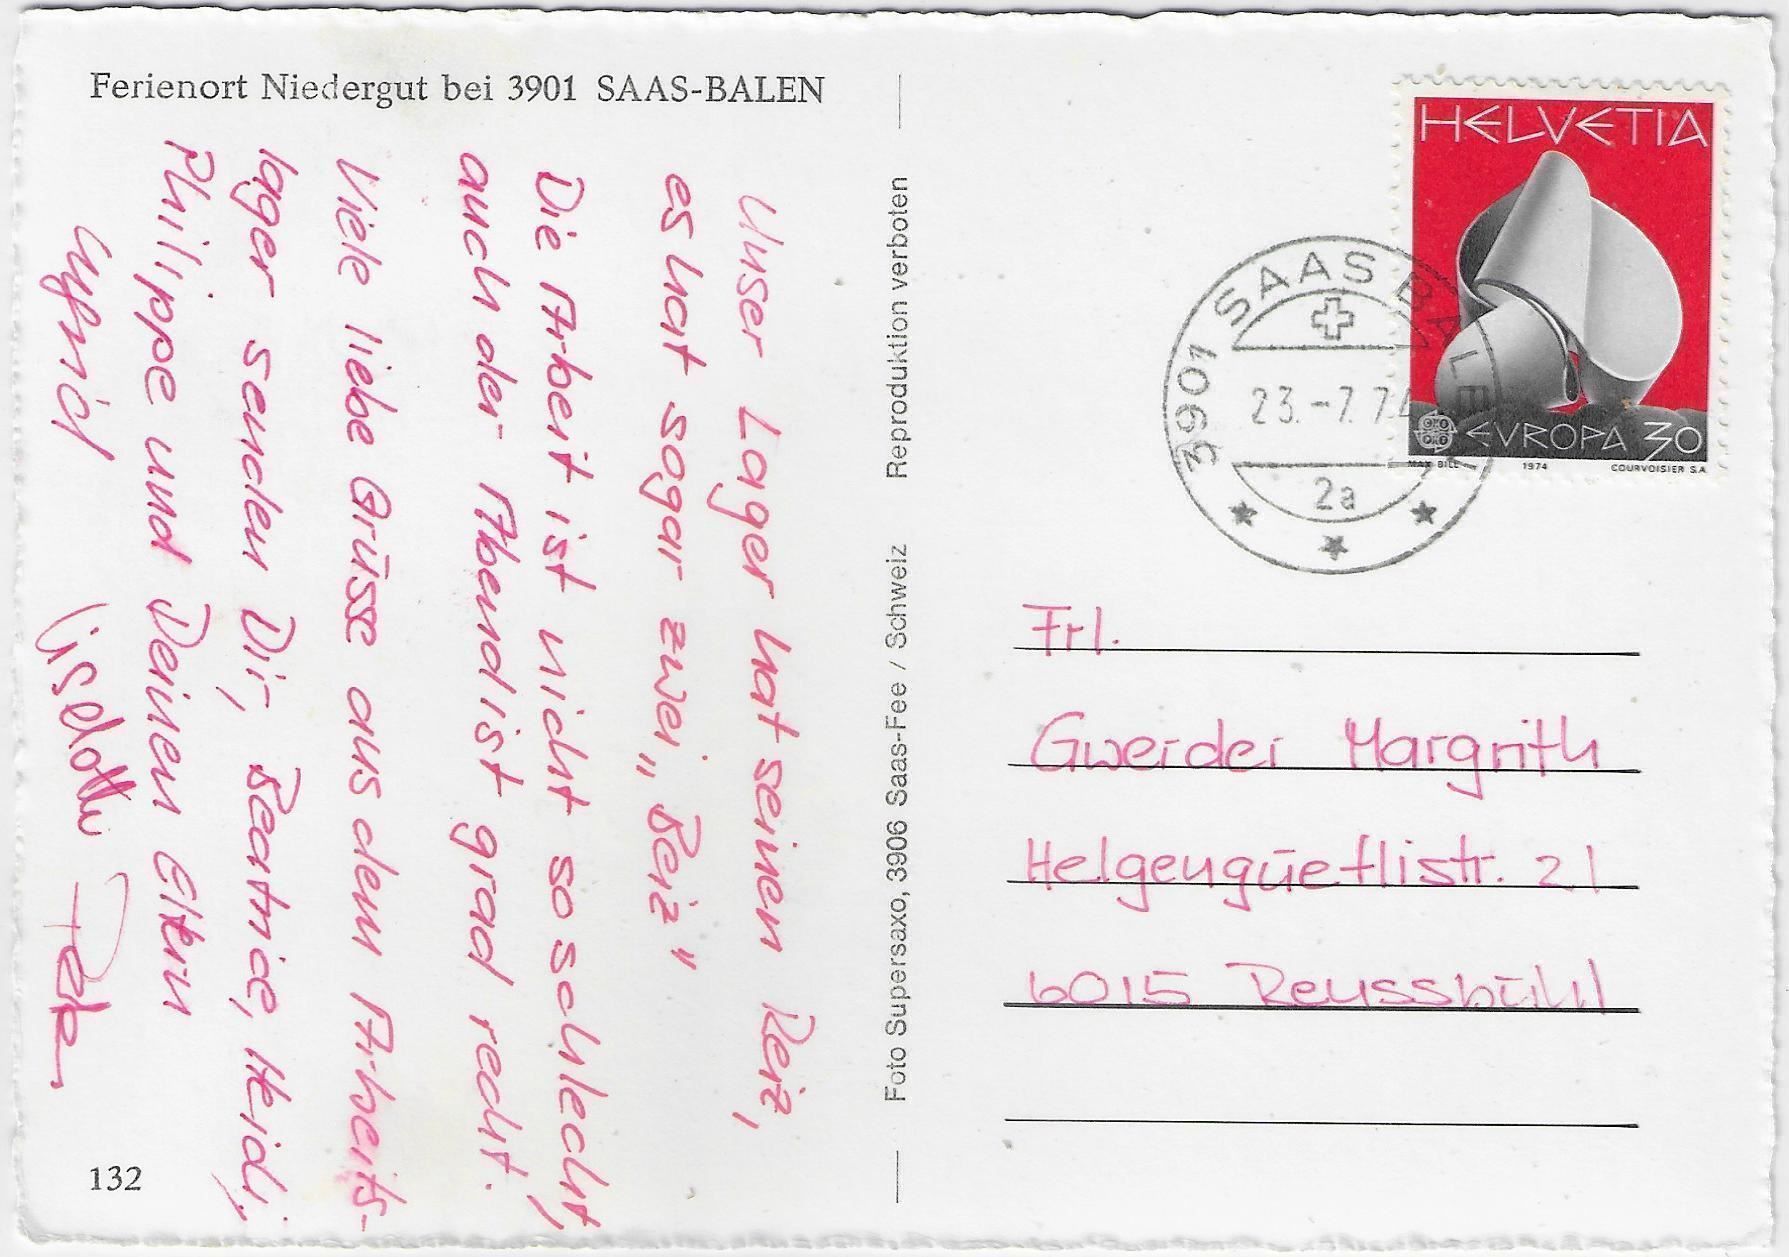 Ferienort Niedergut bei 3901 SAAS-BALEN
Unser Lager hat seinen Reiz,
es hat sogar zwei „Beiz"
Die Arbeit ist nicht so schlecht,
auch der Abend ist grad recht.
Viele liebe Grüsse aus dem Arbeits-
lager senden Dir, Beatrice, Heidi,
Philippe und Deinen Eltern
Liselotte
132
Foto Supersaxo, 3906 Saas-Fee / Schweiz Reproduktion verboten
HELVETIA
EVROPA 30
MAX BILL 1974 COURVOISIER S.A
3901 SAAS BALEN
23.-7.74
2a
Frl.
Gwerder Margrith
Helgengüetlistr. 21
6015 Reussbühl